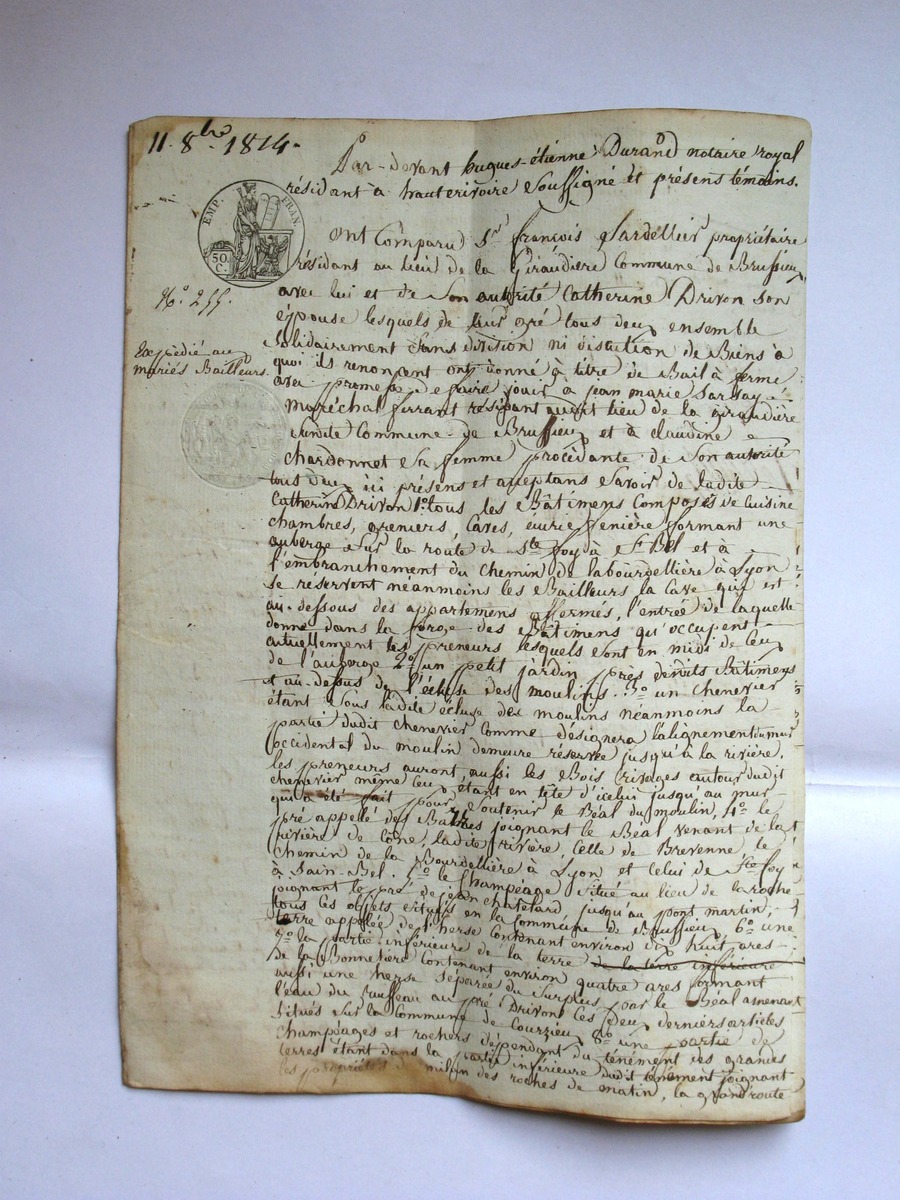 11. 8bre 1814.
Par-devant hugues-étienne Durand notaire royal
résidant à hauterivoire soussigné et présens témoins.
EMP. FRAN.
50. C.
Ont Comparu Sr. françois Jardellier propriétaire
résidant au lieu de la Giraudière Commune de Brussieu,
avec lui et de Son autorité Catherine Drivon Son
épouse lesquels de leur gré tous deux ensemble
No. 255.
Solidairement Sans division ni discution de Biens à
Expédié aux
mariés Bailleurs.
quoi ils renonçant ont donné à titre de Bail à ferme
avec promesse de faire jouir à jean marie
maréchal ferrant résidant audit lieu de la giraudière
susdite Commune de Brussieu et à claudine
chardonnet Sa femme procédante de Son autorité
tous deux ici présens et acceptans Savoir de ladite
Catherine Drivon 1o. tous les Bâtimens Composés de Cuisine
chambres, greniers, Caves, écurie fenière formant une
auberge Sur la route de Ste foy à St Bel et à
l'embranchement du chemin de labourdellière à Lyon
se réservent néanmoins les Bailleurs la Cave qui est
au-dessous des appartemens affermés, l'entrée de laquelle
donne dans la forge des Bâtimens qu'occupent
actuellement les preneurs lesquels sont en midi de Ceux
de l'auberge 2o. un petit jardin près desdits Bâtimens
et au-dessus de l'écluse des moulins. 3o. un chenevier
étant Sous ladite écluse des moulins néanmoins la
partie dudit chenevier comme désignera l'alignement du mur
occidental du moulin demeure réservée jusqu'à la rivière.
les preneurs auront aussi les Bois rivages autour dudit
chenevier même Ceux étant en tête d'icelui jusqu'au mur
qui a été fait pour Soutenir le Béal du moulin, 4o. le
pré appellé des joignant le Béal venant de la
rivière de Cone, ladite rivière, Celle de Brevenne le
chemin de la Bourdellière à Lyon et Celui de Ste foy
à Sain-Bel. 5o. le Champéage situé au lieu de la roche
joignant le pré de jean chatelard jusqu'au pont martin,
tous Ces objets situés en la Commune de Brussieu 6o. une
terre appellée de l'herse Contenant environ dix huit ares
7o. la partie inférieure de la terre de la terre inférieure
de la Bonnetière Contenant environ quatre ares formant
aussi une herse séparée du Surplus par le Béal amenant
l'eau du ruisseau au pré Drivon Ces deux derniers articles
situés Sur la Commune de Courzieu 8o. une partie de
champéages et rochers dépendant du tènement des grandes
terres étant dans la partie inférieure dudit tènement joignant
les propriétés de milon des roches de matin, la grand route